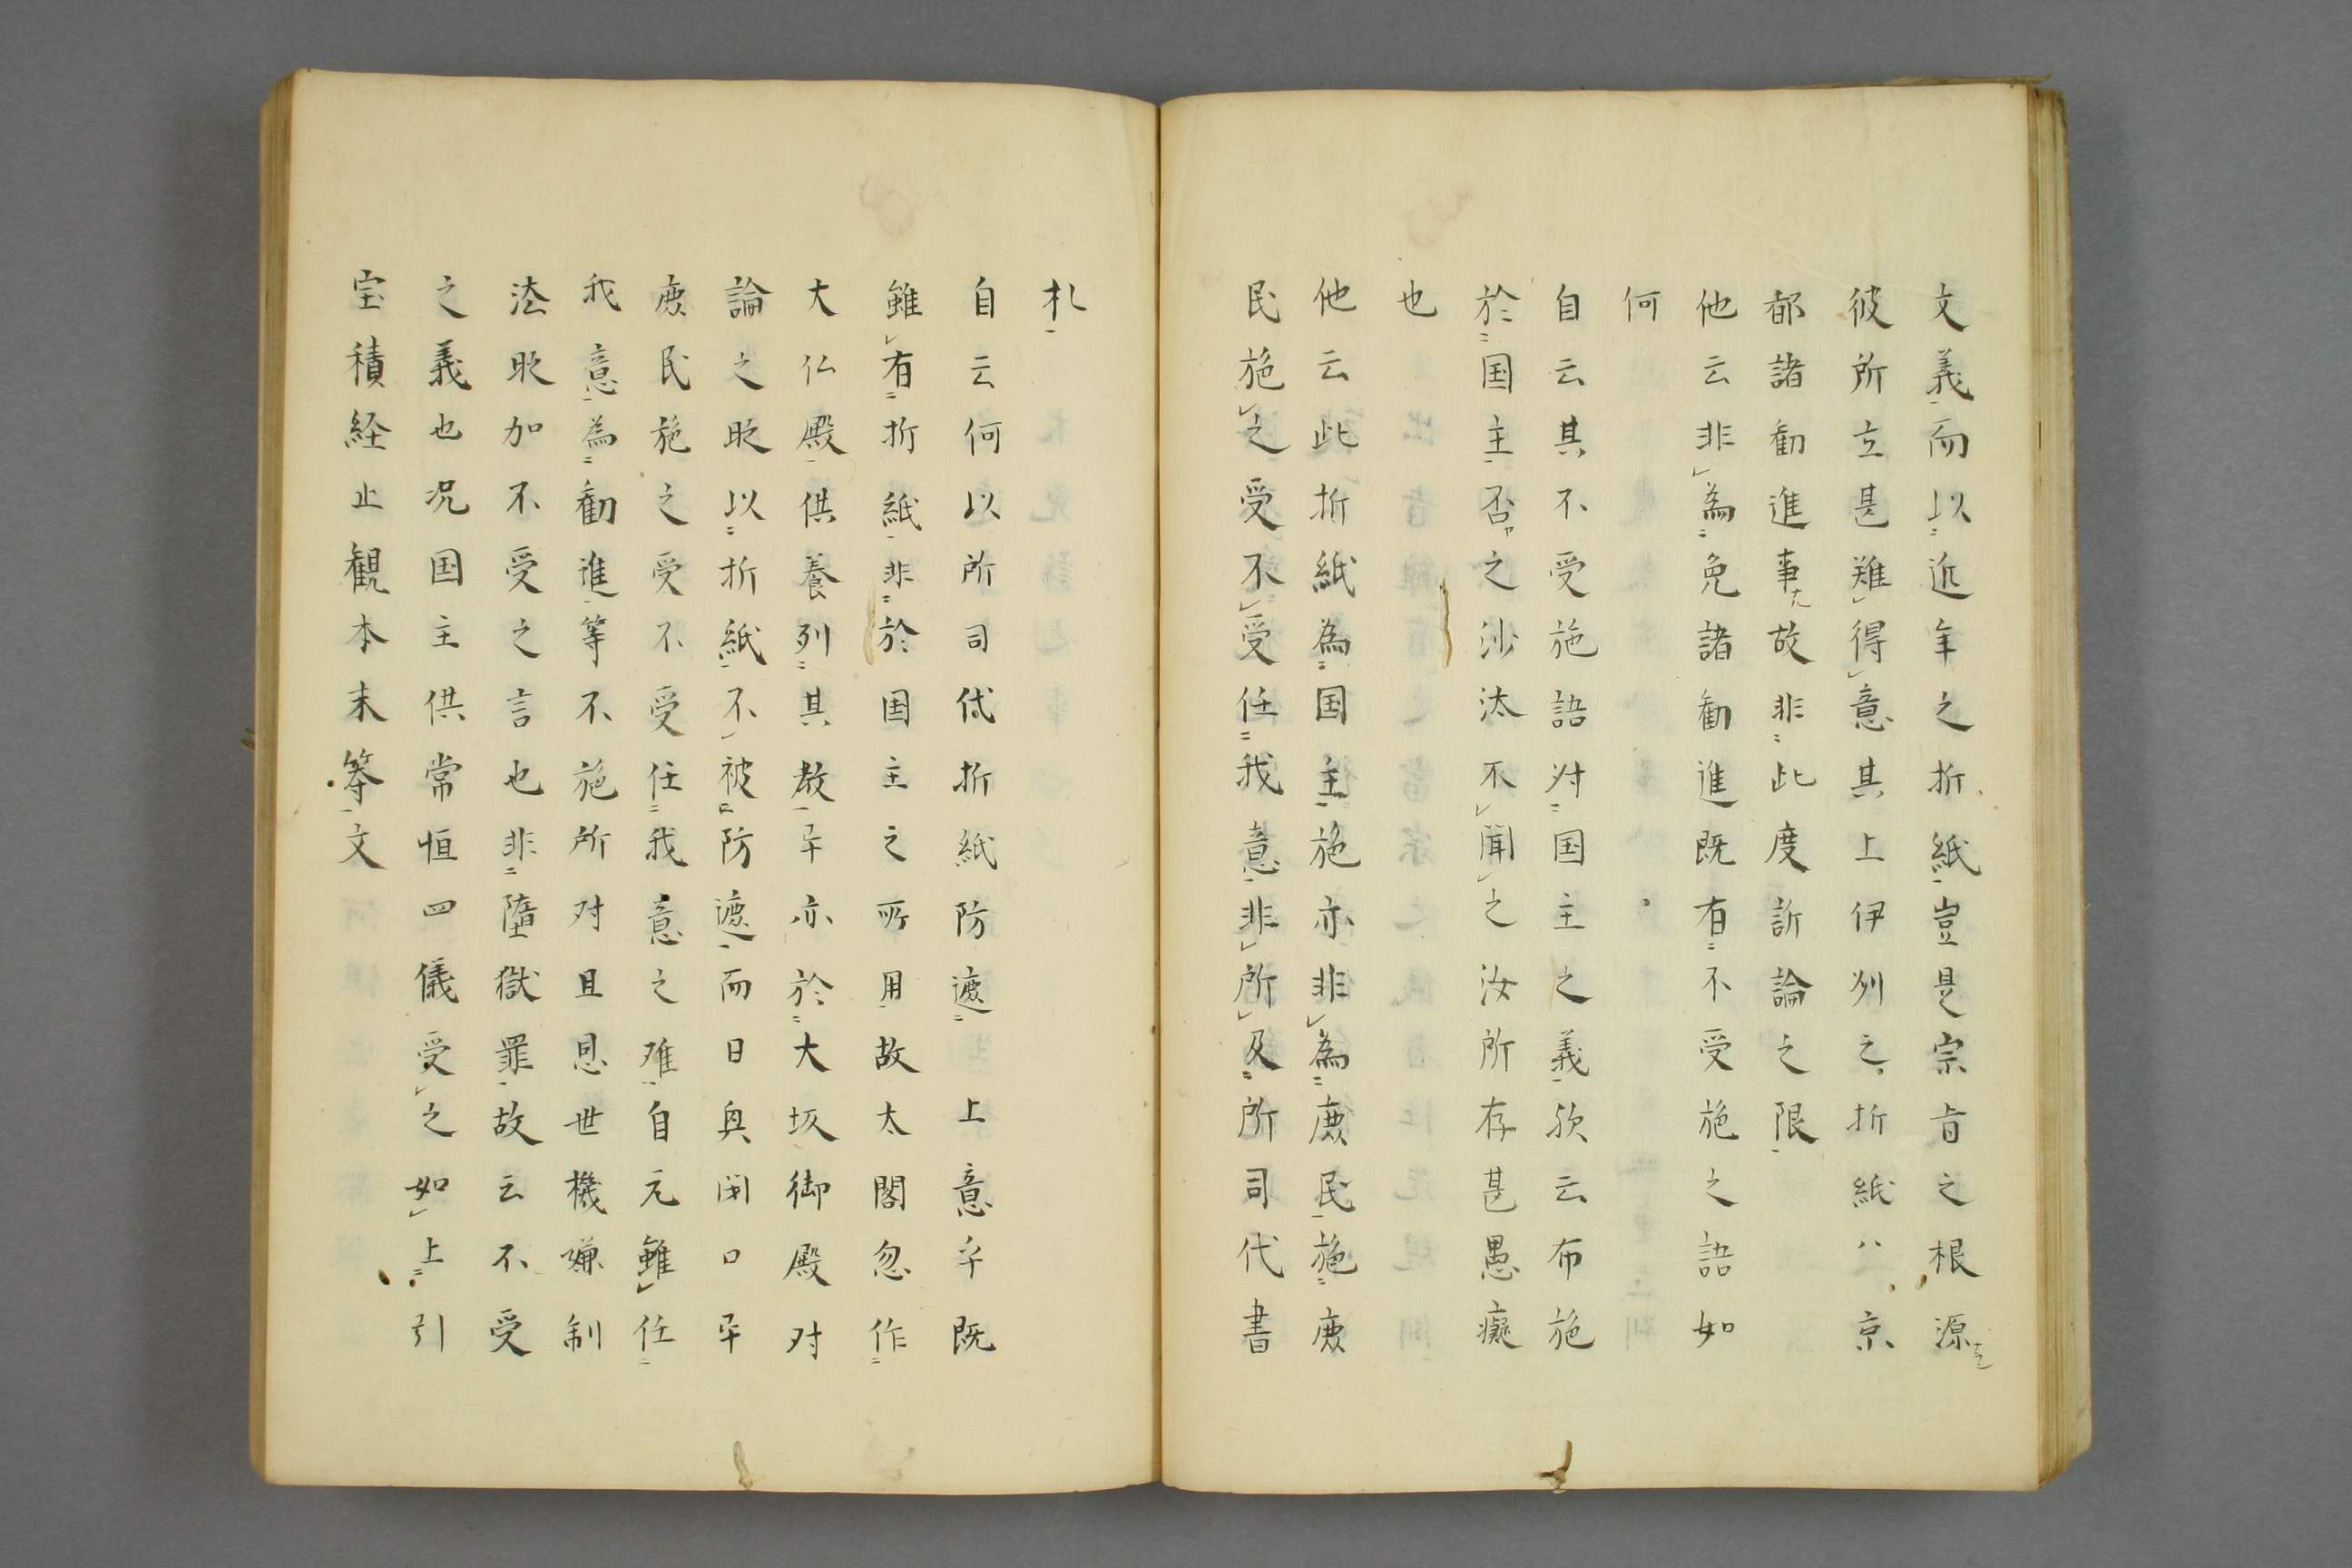 文義而以近年之折紙豈是宗旨之根源
彼所立甚難得意其上伊州之折紙ハ京
都諸勧進事故非此度訴論之限
他云非為免諸勧進既有不受施之語如
何
自云其不受施語対国主之義欤云布施
於国主否之沙汰不聞之汝所存甚愚癡
也
他云此折紙為国主施亦非為庶民施庶
民施之受不受任我意非所及所司代書
札
自云何以所司代折紙防遮上意乎既
雖有折紙非於国主之所用故太閤忽作
大仏殿供養列其教乎亦於大坂御殿対
論之時以折紙不被防遮而日奥閉口乎
庶民施之受不受任我意之难自元雖任
我意為勧進等不施所対且恩世機嫌制
法時加不受之言也非墮獄罪故云不受
之義也况国主供常恒四儀受之如上引
宝積経止観本末等文